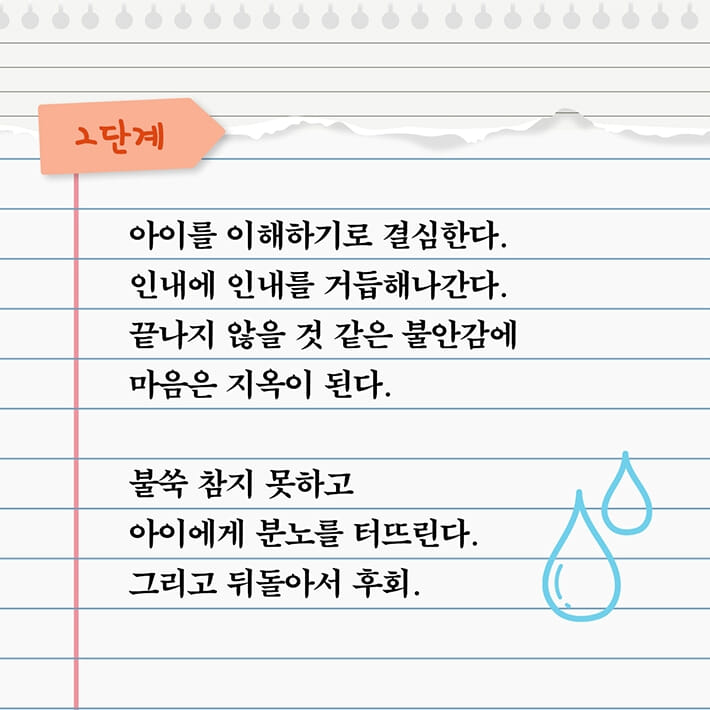 2단계
아이를 이해하기로 결심한다.
인내에 인내를 거듭해나간다.
끝나지 않을 것 같은 불안감에
마음은 지옥이 된다.
불쑥 참지 못하고
아이에게 분노를 터뜨린다.
그리고 뒤돌아서 후회.